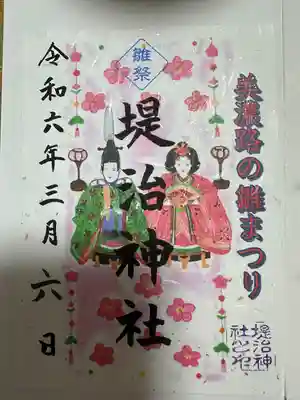 雛祭
美濃路の雛まつり
堤治神社
令和六年三月六日
堤治神
社之印